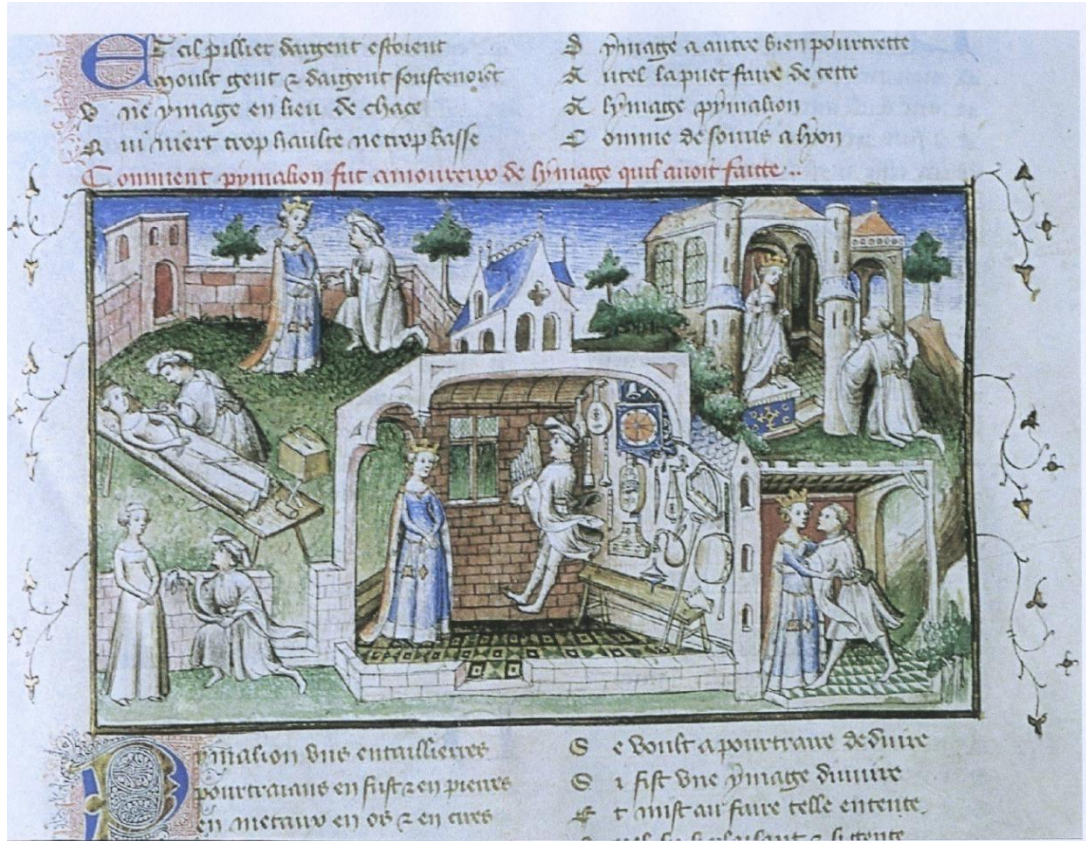 Et cil pillier dargent estoient
Moult gent & dargent soustenoient
Vne ymage en lieu de chace
Qui niert trop haulte ne trop basse
D ymage a autre bien pourtrette
Autel la puet faire de cette
A lymage pymalion
Comme de souris a lyon
Comment pymalion fut amoureux de lymage quil auoit faitte
Pymalion vns entaillierres
pourtraians en fust & en pierres
en metaux en os & en cires
Se voult a pourtraire deduire
Si fist vne ymage diuuire
Et mist au faire telle entente
plaisant & si gente